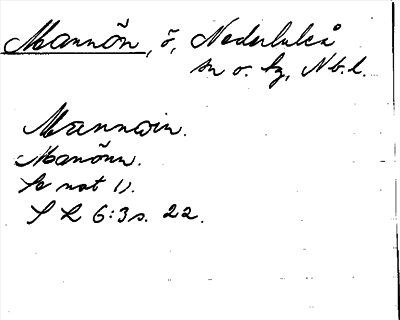 Mannön, ö, Nederluleå
sn o. tg, Nb. l.
Mannoin.
Manönn.
Se not 1).
S L 6:3 s. 22.